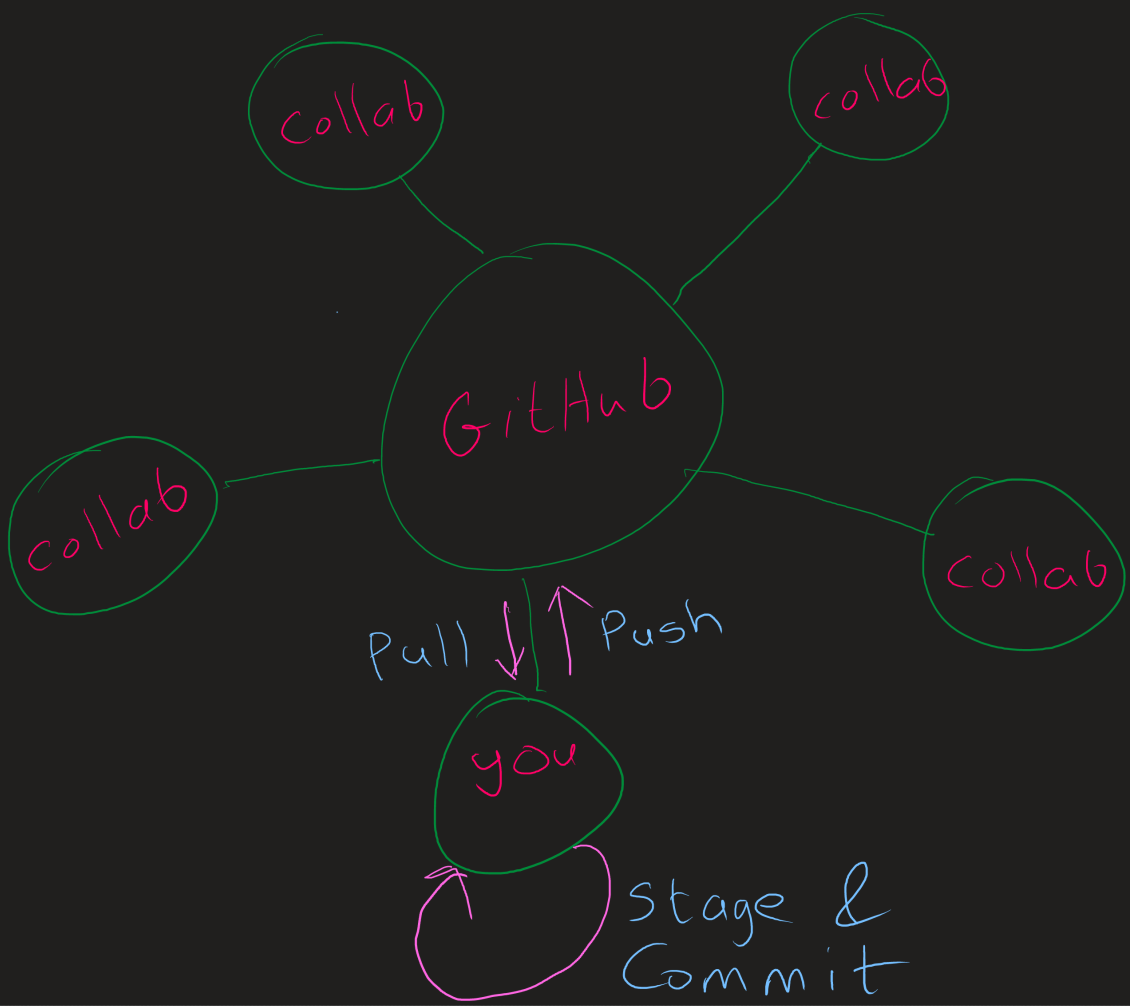 Collab
collab
GitHub
collab
collab
Pull
Push
you
Stage &
Commit